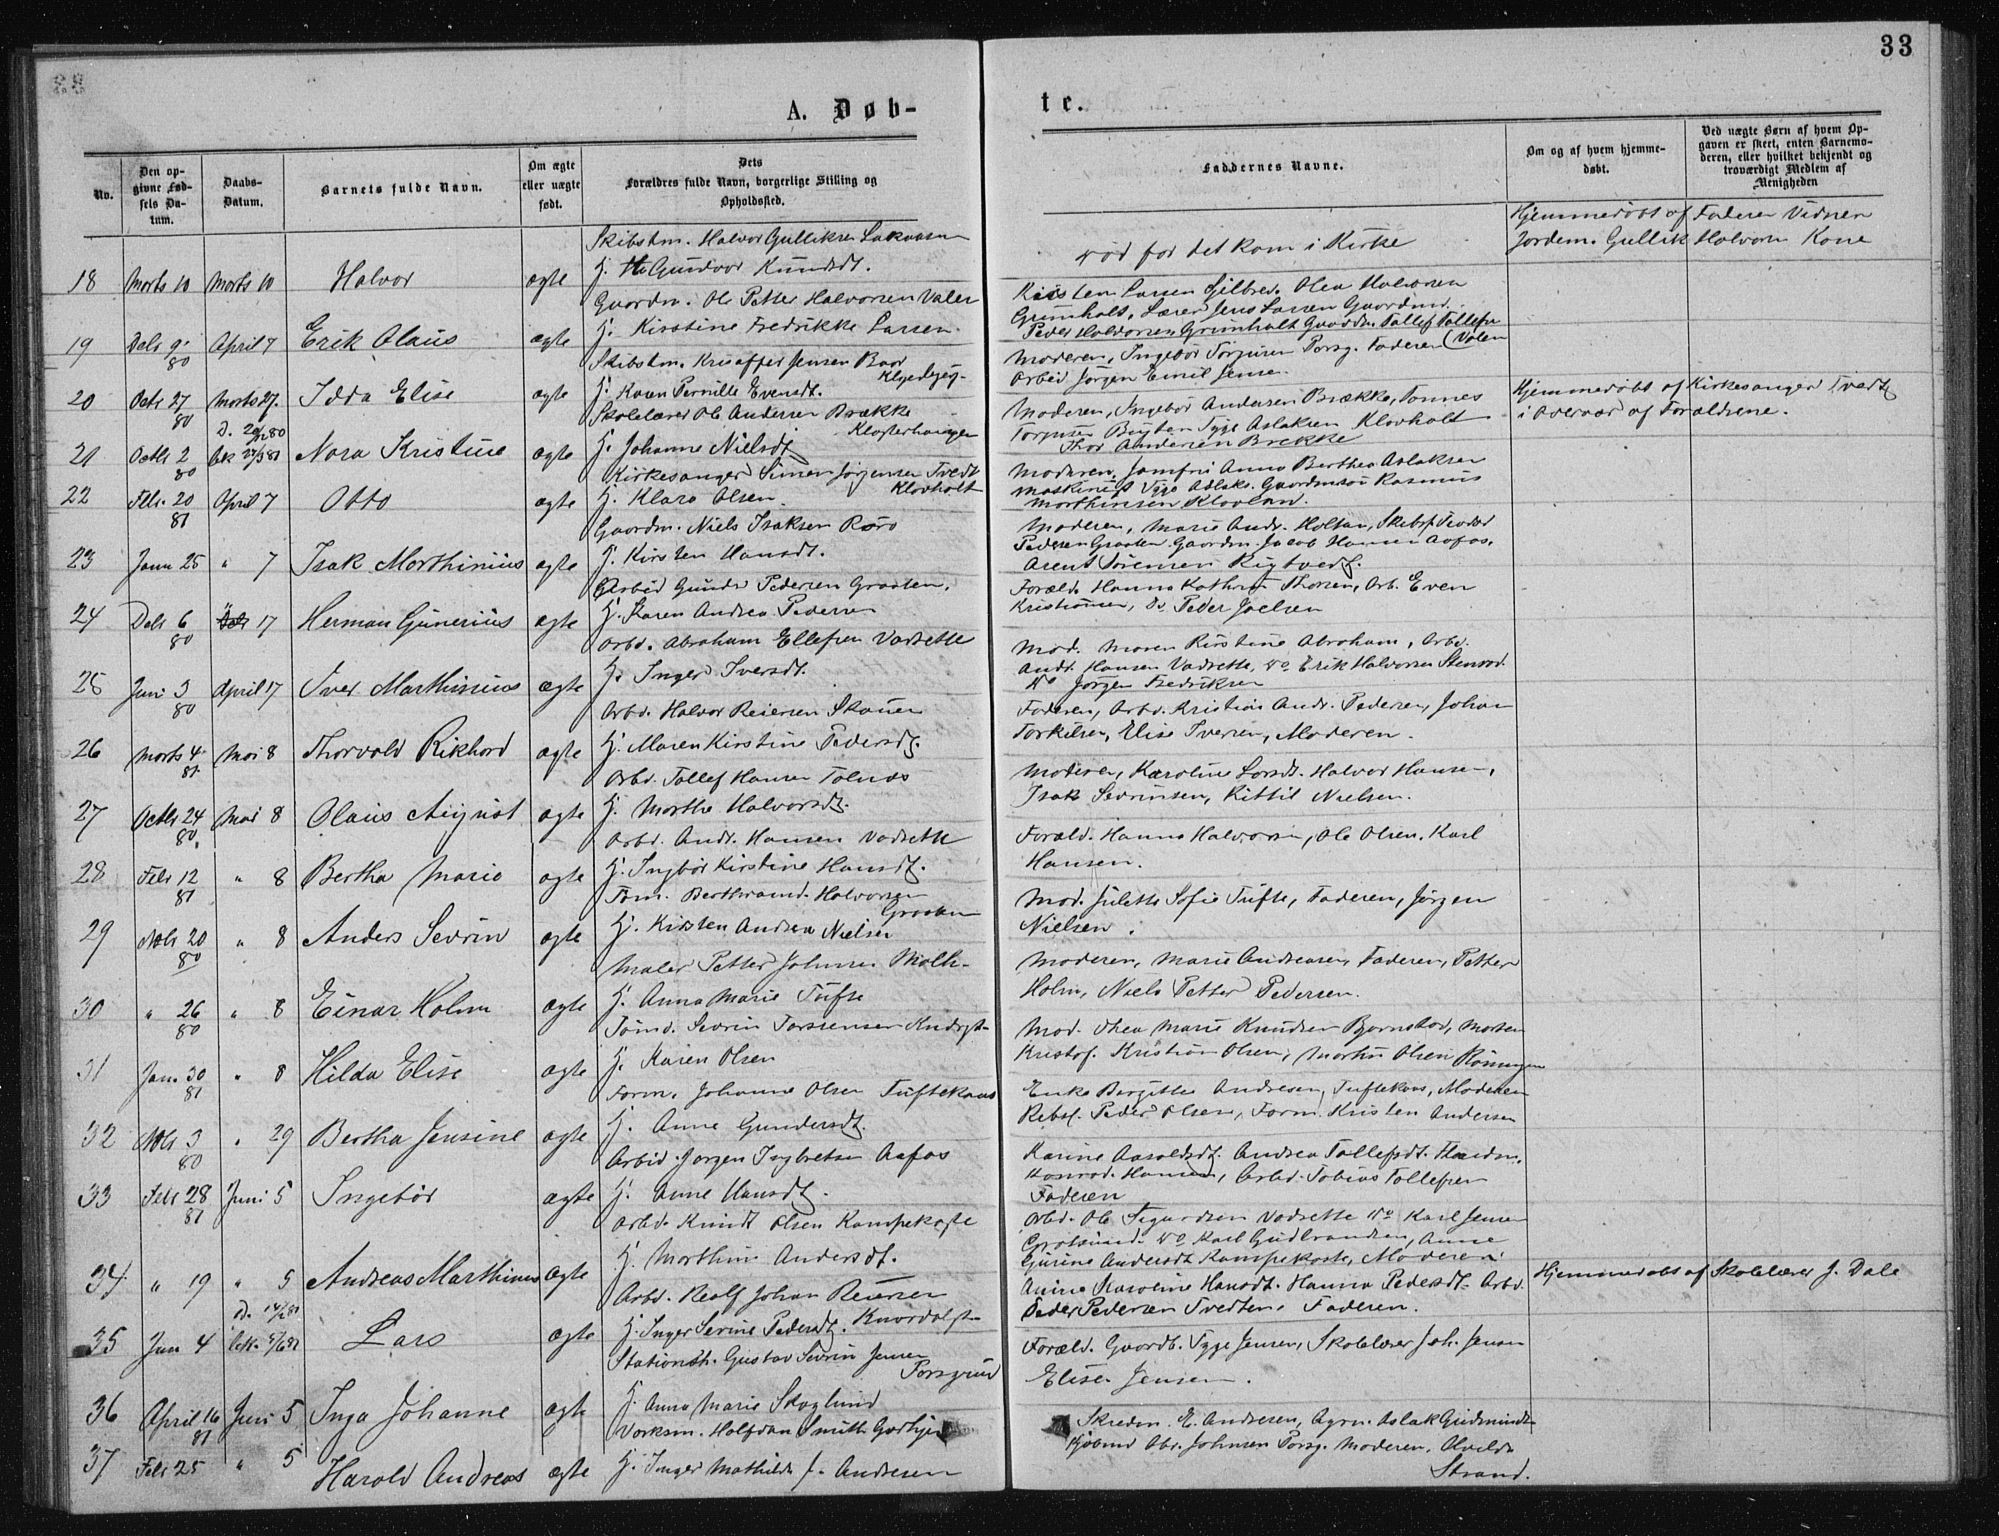 33
A. Døb-
te.
No.
Den opgivne Fødsels Datum.
Daabs-Datum.
Barnets fulde Navn.
Om ægte eller uægte født.
Dets Forældres fulde Navn, borgerlige Stilling og Opholdssted.
Faddernes Navne.
Om og af hvem hjemmedøbt.
Ved uægte Børn af hvem Opgaven er skeet, enten Barnemoderen, eller hvilket bekjendt og troværdigt Medlem af Menigheden
18 Marts 10 Marts 10 Halvor ægte
Skibstm. Halvor Gulliksen
H. Gundvor Knudsdt.
død før det kom i Kirke
Hjemmedøbt af Faderen Vidner
Jordem. Gullik Halvorsn Kone
19 Decbr 9 80 April 7 Erik Olaus ægte
Gaardm. Ole Petter Halvorsen Valen
H. Kirstine Fredrikke Larsen
Kristen Larsen Gilbred. Olea Halvorsen
Grimholt, Lærer Jens Larsen Gaardmd.
Peder Halvorsen Grimholt Gaardm Tollef Tollefsn
(Valen
20 Octbr 27 80 Marts 27 Idda Elise ægte
Skibstm. Kristoffer Jensen
H. Karen Pernille Evensdt.
Moderen, Ingebør Torjusen Porsg. Faderen
Arbeid Jørgen Emil Jensen
21 Octbr 2 80 D. 20/12 80 bek 27/3 81 Nora Kristine ægte
Skolelærer Ole Andersen Brække
Klosterhaugen
H. Johanne Nielsdt
Moderen, Ingebør Andersen Brække, Tønnes
Torjusen Tygge Aslaksen Klovholt
Thor Andersen Brekke
Hjemmedøbt af Kirkesanger Tvedt
i Overvær af Forældrene.
22 Febr. 20 81 April 7 Otto ægte
Kirkesanger Simen Jørgensen Tvedt
Klovholt
H. Klara Olsen
Moderen, Jomfru Anna Berthea Aslaksen
Maskinist Tygge Aslaks. Gaardmsøn Rasmus
Marthinsen Klovland.
23 Janu 25 " 7 Isak Marthinius ægte
Gaardm. Niels Isaksen Røro
H. Kirsten Hansdt.
Moderen, Marie Andr. Holtan, Skibsf. Teodor
Pedersen Graaten Gaardm. Jacob Hansen Aafos,
Arent Sørensen Rigtvedt.
24 Decbr 6 80 " 17 Herman Gunerius ægte
Arbeid Gunder Pedersen Graaten,
H. Karen Andrea Pedersen
Foræld. Hanna Kathrine Thorsen, Arb. Even
Kristiansen, Do Peder Joelsen
25 Juni 3 80 April 17 Iver Marthinius ægte
Arbd. Abraham Ellefsen Vadsette
H. Inger Iversdt.
Mod. Maren Kirstine Abraham, Arbd.
Andr. Hansen Vadsette, Do Erik Halvorsen Stenrød.
Do Jørgen Fredriksen
26 Marts 4 81 Mai 8 Thorvald Rikhard ægte
Arbd. Halvor Reiersen Skauen
H. Maren Kirstine Pedersdt.
Faderen, Arbd. Kristian Andr. Pedersen, Johan
Torkilsen, Elise Iversen, Moderen.
27 Octbr 24 80 Mai 8 Olaus August ægte
Arbd. Tollef Hansen Tolnæs
H. Marthe Halvorsdt.
Moderen, Karoline Larsdt. Halvor Hansen,
Isak Sevrinsen, Kittil Nielsen.
28 Febr 12 81 " 8 Bertha Marie ægte
Arbd. Andr. Hansen Vadsette
H. Ingbør Kirstine Hansdt.
Foræld. Hanna Halvorsen, Ole Olsen, Karl
Hansen.
29 Nobr 20 80 " 8 Anders Sevrin ægte
Tøm. Berthrand Halvorsen
Graaten
H. Kirsten Andrea Nielsen
Mod. Julette Sofie Tufte, Faderen, Jørgen
Nielsen.
30 " 26 80 " 8 Einar Holm ægte
Maler Petter Johnsen
H. Anna Marie Tufte
Moderen, Marie Andreasen, Faderen, Petter
Holm, Niels Petter Pedersen.
31 Jan. 30 81 " 8 Hilda Elise ægte
Tømd. Sevrin Torstensen
H. Karen Olsen
Mod. Thea Marie Knudsen Bjørnstad, Morten
Kristof. Kristian Olsen, Marthe Olsen Røningen
32 Nobr 3 80 " 29 Bertha Jensine ægte
Form. Johannes Olsen Tuftekaas
H. Anne Gundersdt.
Enke Birgitte Andresen, Tuftekaas, Moderen
Rebsl. Peder Olsen, Form. Kristen Andersen
33 Febr 28 81 Juni 5 Ingebør ægte
Arbeid. Jørgen Ingbretsen Aafos
H. Anne Hansdt.
Karine Aaroldsdt. Andrea Tollefsdt.
Hansen, Arbd. Tobias Tollefsen
Faderen
34 " 19 " 5 Andreas Marthinus ægte
Arbd. Knudt Olsen Kampekaste
H. Marthine Andersdt.
Arbd. Ole Sigurdsen Vadsette Do Karl Jensen
Do Karl Gudbrandsen, Anne
Gurine Andersdt Kampekaste, Moderen
35 Jan 4 D. 14/2 81 bek. 5/6 81 Lars ægte
Arbd. Realf Johan Reiersen
H. Inger Sevrine Pedersdt. Knardalst-
Anine Karoline Hansdt. Hanna Pedersdt. Arbd.
Peder Pedersen Tvedten, Faderen.
Hjemmedøbt af Skolelærer J. Dale
36 April 16 81 Juni 5 Inga Johanne ægte
Stationsb. Gustav Sevrin Jensen
Porsgrund
H. Anna Marie Skoglund
Foræld. Gaardb. Tygge Jensen, Skolelærer Joh. Jensen
Elise Jensen.
37 Febr 25 " 5 Harald Andreas ægte
Værksm. Halfdan Smith
H. Inger Mathilde J. Andresen
Skredm. E. Andresen, Agen. Aslak Gudmundt
Kjøbmd Abr. Johnsen Porsg. Moderen, Alvilde
Strand.